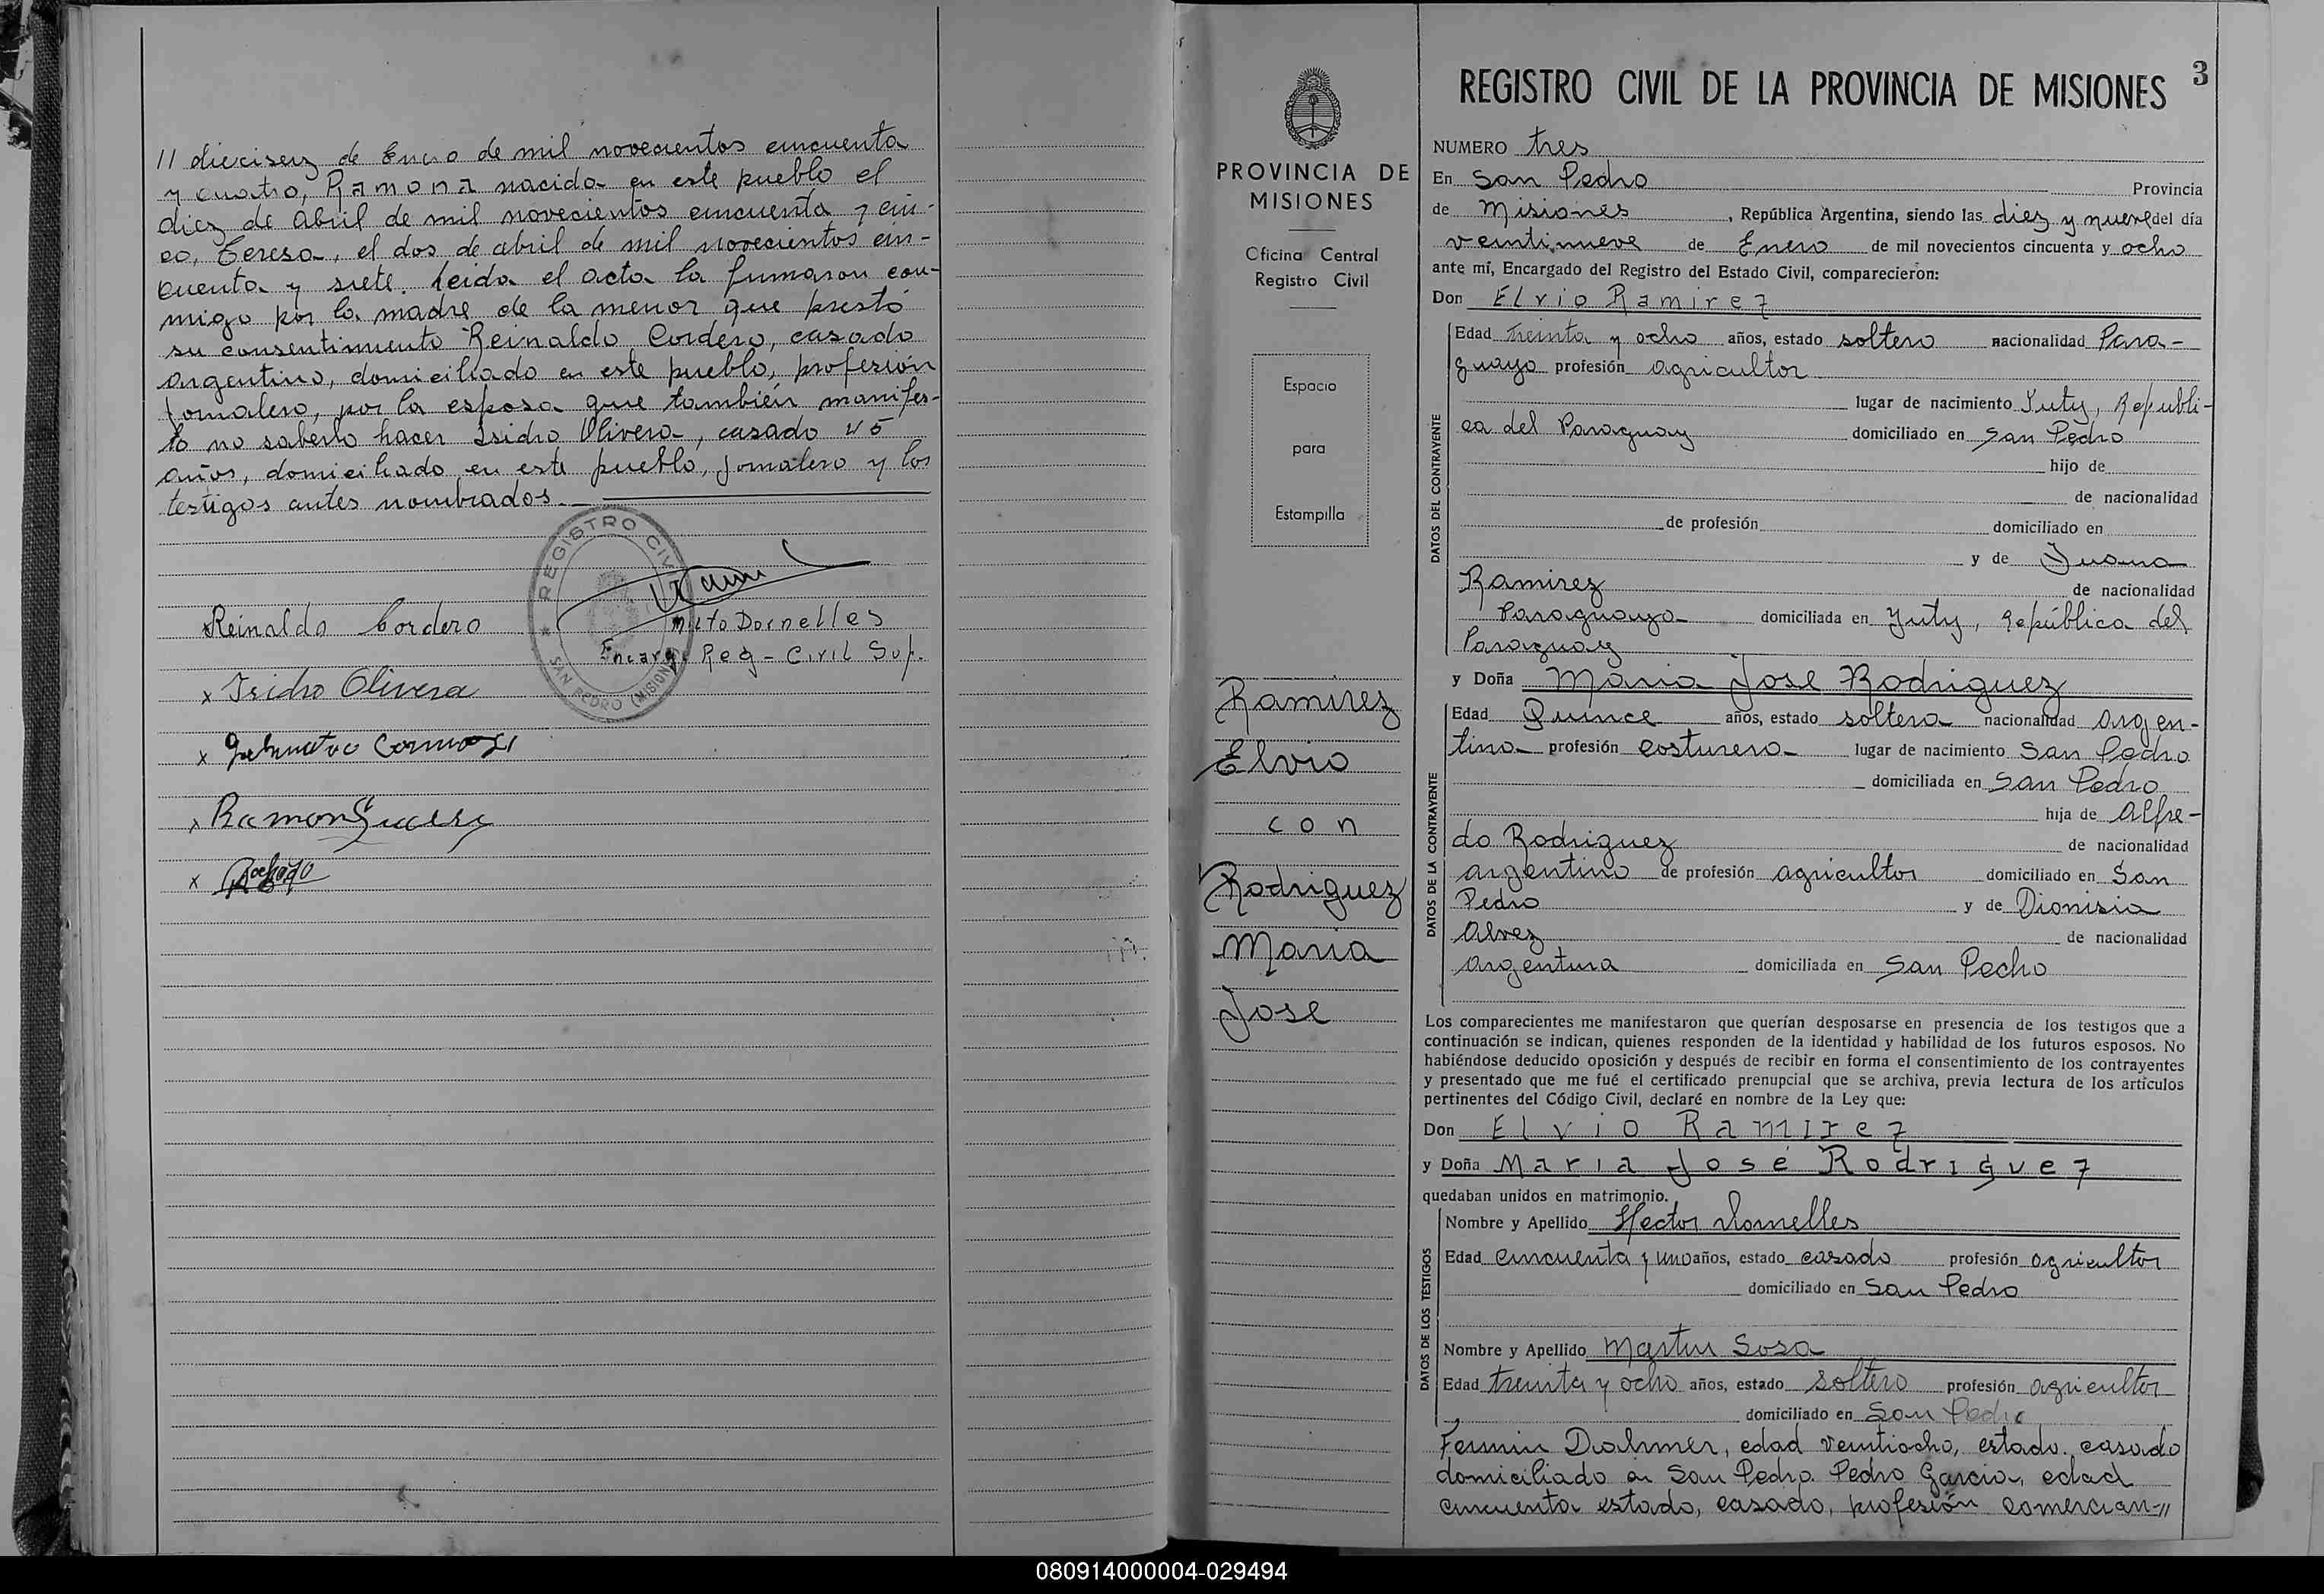 // dieciseis de Enero de mil novecientos cincuenta
y cuatro, Ramona nacida en este pueblo el
diez de abril de mil novecientos cincuenta y cin-
co, Teresa, el dos de abril de mil novecientos cin-
cuenta y siete. Leida el acta la firmaron con-
migo por la madre de la menor que prestó
su consentimiento Reinaldo Cordero, casado
argentino, domiciliado en este pueblo, profesión
jornalero, por la esposa que también manifes-
tó no saberlo hacer Isidro Olivera, casado 45
años, domiciliado en este pueblo, jornalero y los
testigos antes nombrados
REGISTRO CIVIL
SAN PEDRO (MISIONES)
Reinaldo Cordero
Dornelles
Encarg. Reg - Civil Sup.
x Isidro Olivera
x
x Ramon
x
PROVINCIA DE
MISIONES
Oficina Central
Registro Civil
Espacio
para
Estampilla
Ramirez
Elvio
con
Rodriguez
Maria
Jose
REGISTRO CIVIL DE LA PROVINCIA DE MISIONES 3
NUMERO tres
En San Pedro Provincia
de Misiones, República Argentina, siendo las diez y nueve del día
veintinueve de Enero de mil novecientos cincuenta y ocho
ante mí, Encargado del Registro del Estado Civil, comparecieron:
Don Elvio Ramirez
DATOS DEL CONTRAYENTE
Edad treinta y ocho años, estado soltero nacionalidad Para-
guayo profesión agricultor
lugar de nacimiento Yuty, Republi-
ca del Paraguay domiciliado en San Pedro
hijo de
de nacionalidad
de profesión domiciliado en
y de Juana
Ramirez de nacionalidad
Paraguaya domiciliada en Yuty, República del
Paraguay
y Doña Maria Jose Rodriguez
DATOS DE LA CONTRAYENTE
Edad Quince años, estado soltera nacionalidad argen-
tina profesión costurera lugar de nacimiento San Pedro
domiciliada en San Pedro
hija de Alfre-
do Rodriguez de nacionalidad
argentino de profesión agricultor domiciliado en San
Pedro y de Dionisia
Alvez de nacionalidad
argentina domiciliada en San Pedro
Los comparecientes me manifestaron que querían desposarse en presencia de los testigos que a
continuación se indican, quienes responden de la identidad y habilidad de los futuros esposos. No
habiéndose deducido oposición y después de recibir en forma el consentimiento de los contrayentes
y presentado que me fué el certificado prenupcial que se archiva, previa lectura de los artículos
pertinentes del Código Civil, declaré en nombre de la Ley que:
Don Elvio Ramirez
y Doña Maria José Rodriguez
quedaban unidos en matrimonio.
DATOS DE LOS TESTIGOS
Nombre y Apellido Hector Dornelles
Edad cincuenta y uno años, estado casado profesión agricultor
domiciliado en San Pedro
Nombre y Apellido Martin Sosa
Edad treinta y ocho años, estado soltero profesión agricultor
domiciliado en San Pedro
Fermin Dahmer, edad veintiocho, estado casado
domiciliado en San Pedro. Pedro Garcia, edad
cincuenta estado, casado, profesión comercian-//
080914000004-029494